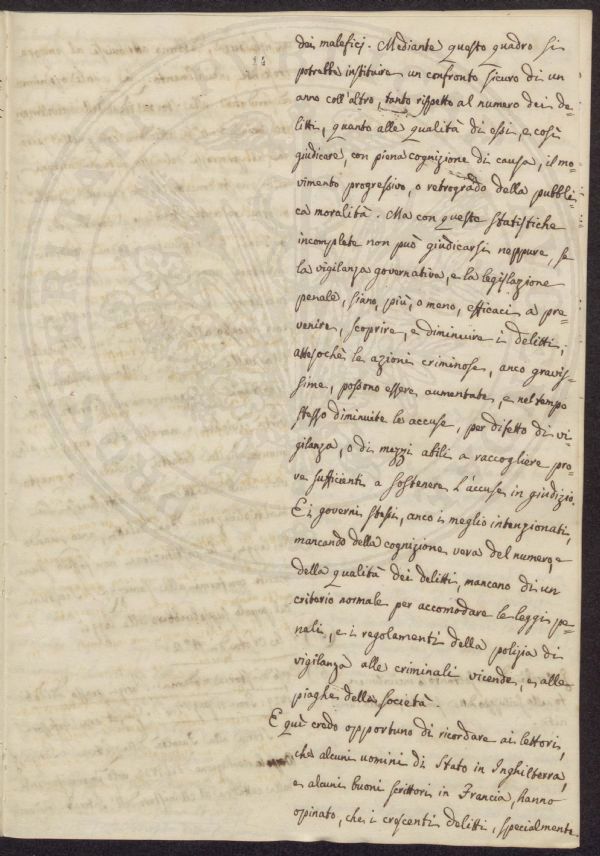 dei maleficj. Mediante questo quadro si
potrebbe instituire un confronto sicuro di un
anno coll'altro, tanto rispetto al numero dei de=
litti, quanto alle qualità di essi, e così
giudicare, con piena cognizione di causa, il mo=
vimento progressivo, o retrogrado della pubbli=
ca moralità. Ma con queste statistiche
incomplete non può giudicarsi neppure, se
la vigilanza governativa, e la legislazione
penale, siano, più, o meno, efficaci a pre=
venire, scoprire, e diminuire i delitti;
attesochè le azioni criminose, anco gravis=
sime, possono essere aumentate, e nel tempo
stesso diminuite le accuse, per difetto di vi=
gilanza, o di mezzi abili a raccogliere pro=
ve sufficienti a sostenere l'accuse in giudizio.
E i governi stessi, anco i meglio intenzionati,
mancando della cognizione vera del numero, e
della qualità dei delitti, mancano di un
criterio normale per accomodare le leggi pe=
nali, e i regolamenti della polizia di
vigilanza alle criminali vicende, e alle
piaghe della società.
E quì credo opportuno di ricordare ai lettori,
che alcuni uomini di Stato in Inghilterra,
e alcuni buoni scrittori in Francia, hanno
opinato, che i crescenti delitti, specialmente